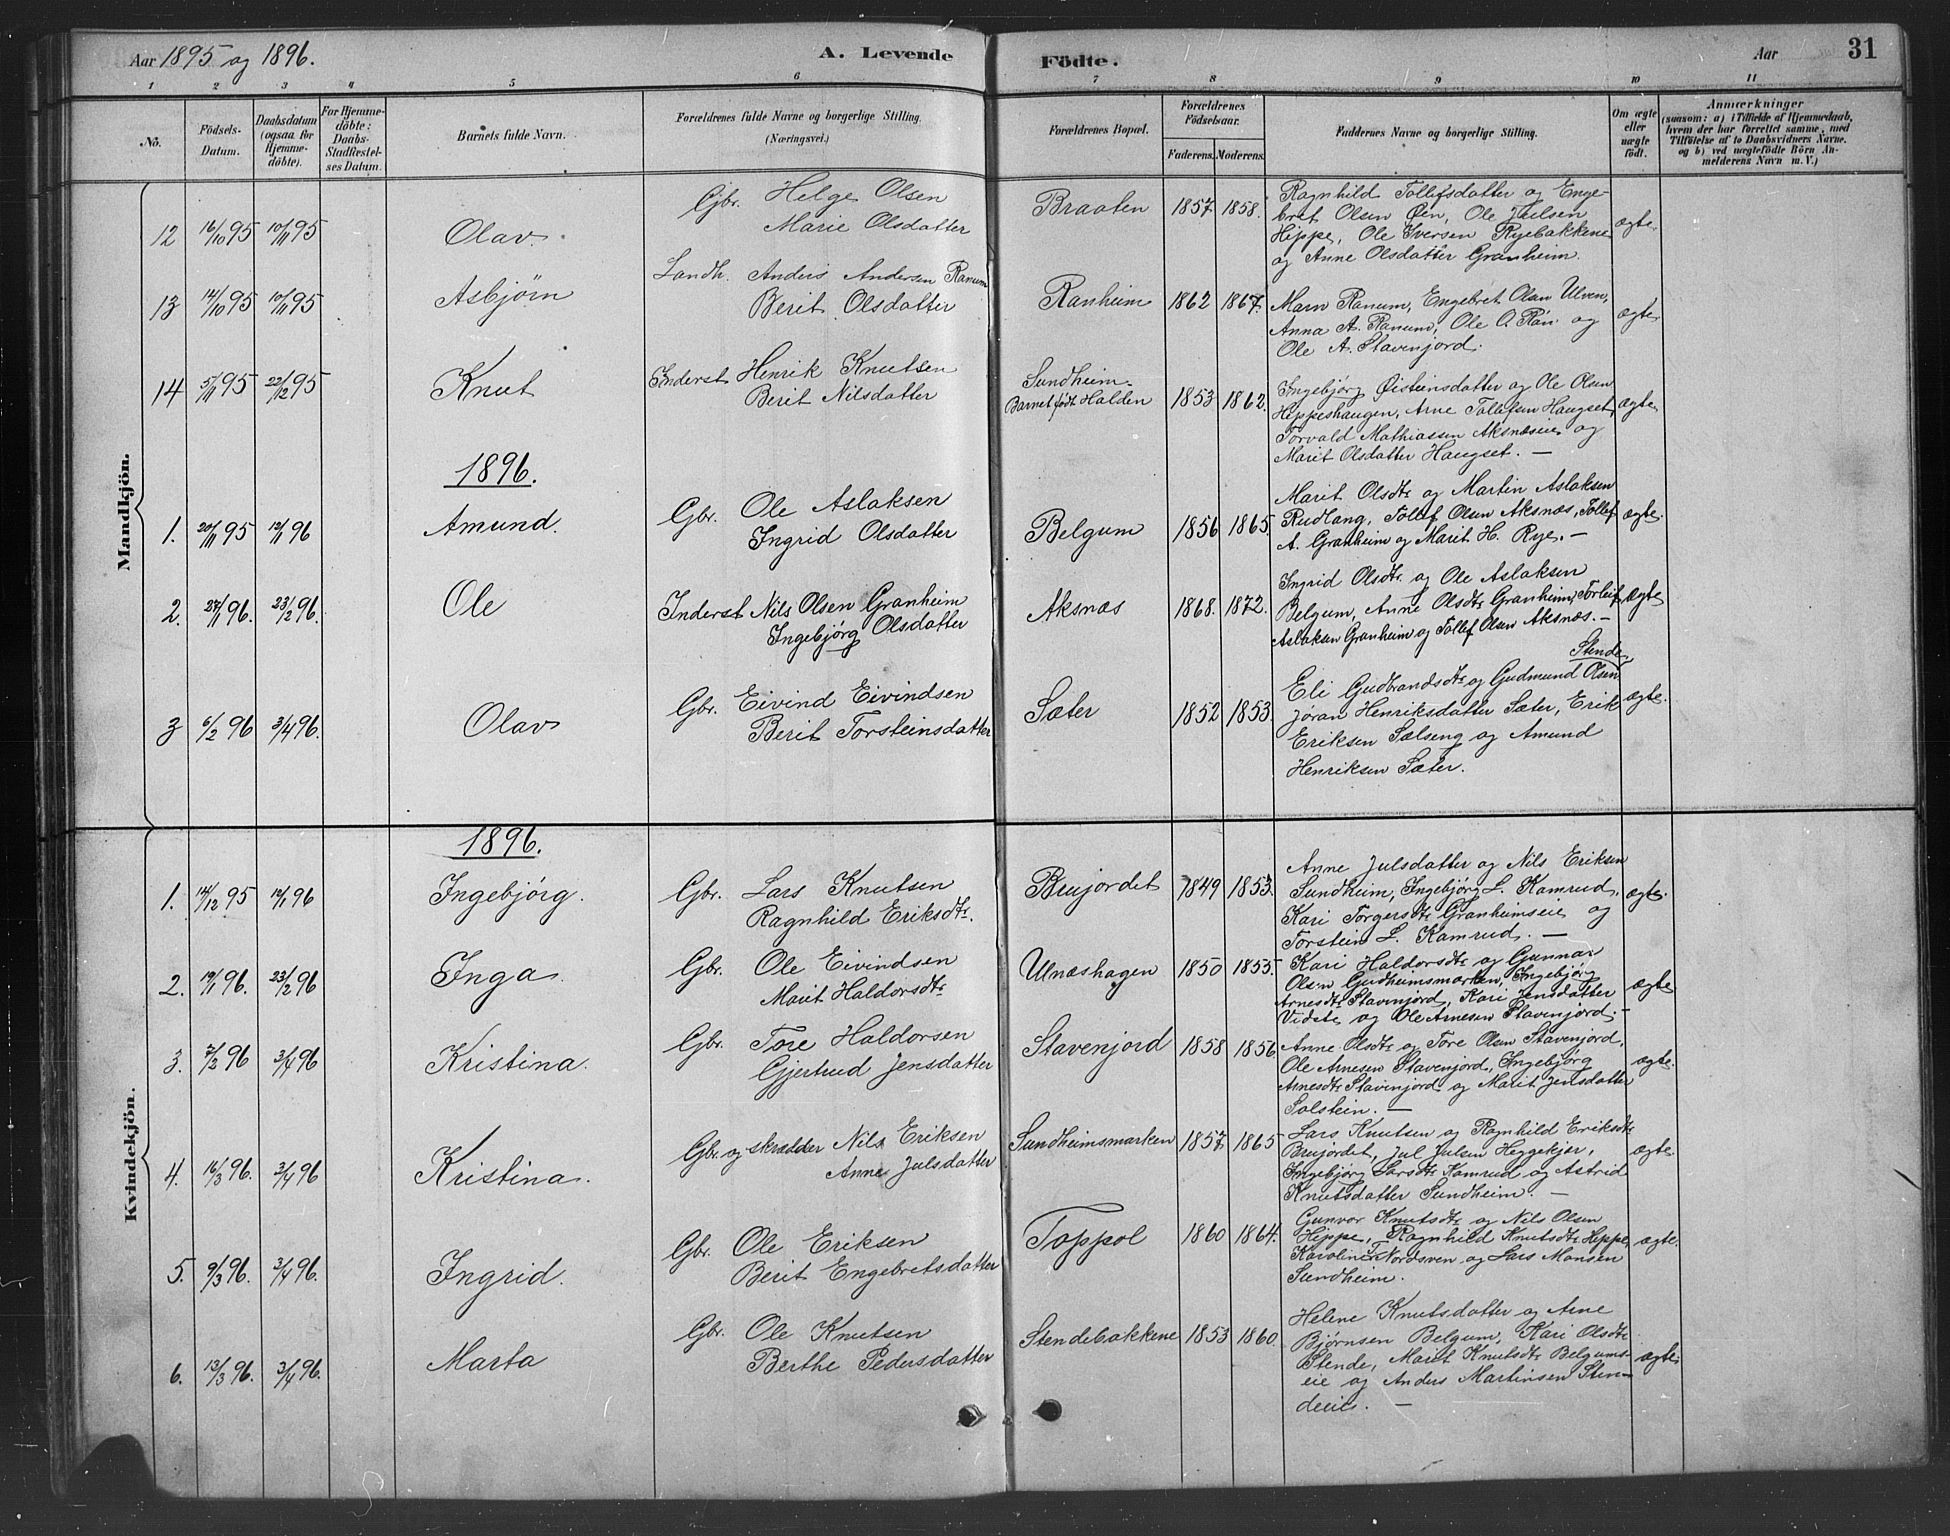 Aar 1895 og 1896. A. Levende Födte. Aar 31
1 2 3 4 5 6 7 8 9 10 11
No.
Födsels-
Datum.
Daabsdatum
(ogsaa for
Hjemme-
döbte).
For Hjemme-
döbte:
Daabs-
Stadfæstel-
ses Datum.
Barnets fulde Navn.
Forældrenes fulde Navne og borgerlige Stilling.
(Næringsvei.)
Forældrenes Bopæl.
Forældrenes
Födselsaar.
Faderens. Moderens.
Faddernes Navne og borgerlige Stilling.
Om ægte
eller
uægte
födt.
Anmærkninger
(saasom: a) i Tilfælde af Hjemmedaab,
hvem der har forrettet samme, med
Tilföielse af to Daabsvidners Navne.
og b) ved uægtefödte Börn An-
melderens Navn m. V.)
Mandkjön.
12 16/10 95 10/11 95 Olav
Gbr. Helge Olsen
Marie Olsdatter
Braaten 1857 1858.
Ragnhild Tollefsdatter og Enge-
bret Olsen Øen, Ole Julsen
Hippe, Ole Iversen Ryebakkene
og Anne Olsdatter Granheim.
ægte.
13 14/10 95 10/11 95 Asbjørn
Landh. Anders Andersen Ranum
Berit Olsdatter
Ranheim 1862 1867.
Marn Ranum, Engebret Olsen Ulven,
Anna A. Ranum, Ole O. Røn og
Ole A. Stavenjord.
ægte.
14 5/11 95 22/12 95 Knut
Inderst Henrik Knutsen
Berit Nilsdatter
Sundheim.
Barnet født Halden 1853 1862.
Ingebjørg Øisteinsdatter og Ole Olsen
Hippeshaugen, Arne Tollefsen Haugset,
Torvald Mathiassen Aksnæseie og
Marit Olsdatter Haugset. —
ægte.
1896.
1. 20/11 95 12/1 96 Amund.
Gbr. Ole Aslaksen
Ingrid Olsdatter
Belgum 1856 1865.
Marit Olsdtr og Martin Aslaksen
Rudlang, Tollef Olsen Aksnæs, Tollef
A. Granheim og Marit H. Rye. —
ægte.
2. 27/1 96. 23/2 96. Ole
Inderst Nils Olsen Granheim
Ingebjørg Olsdatter
Aksnæs 1868. 1872.
Ingrid Olsdtr. og Ole Aslaksen
Belgum, Anne Olsdtr Granheim, Torleif
Aslaksen Granheim og Tollef Olsen Aksnæs. —
ægte
3 6/2 96 3/4 96. Olav
Gbr. Eivind Eivindsen
Berit Torsteinsdatter
Sæter 1852 1853.
Stende,
Eli Gudbrandsdtr og Gudmund Olsen
Jøran Henriksdatter Sæter, Erik
Eriksen Sælseng og Amund
Henriksen Sæter.
ægte.
Kvindekjön.
1896.
1. 14/12 95 12/1 96 Ingebjörg.
Gbr. Lars Knutsen
Ragnhild Eriksdtr.
Brujordet 1849 1853.
Anne Julsdatter og Nils Eriksen
Sundheim, Ingebjørg L. Kamrud,
Kari Torgersdtr Granheimseie og
Torstein L. Kamrud. —
ægte.
2. 19/1 96. 23/2 96 Inga.
Gbr. Ole Eivindsen
Marit Haldorsdtr.
Ulnæshagen 1850 1855.
Kari Haldorsdtr og Gunnar
Olsen Gudheimsmarken, Ingebjørg
Arnesdtr Stavenjord, Kari Jensdatter
Vidste og Ole Arnesen Stavenjord. —
ægte
3. 7/2 96 3/4 96 Kristina.
Gbr. Tore Haldorsen
Gjertrud Jensdatter
Stavenjord 1858 1856
Anne Olsdtr og Tore Olsen Stavenjord,
Ole Arnesen Stavenjord, Ingebjørg
Arnesdtr Stavenjord og Marit Jensdatter
Solstein. —
ægte.
4. 16/3 96. 3/4 96 Kristina.
Gbr. og skrædder Nils Eriksen
Anne Julsdatter
Sundheimsmarken 1857 1865
Lars Knutsen og Ragnhild Eriksdtr
Brujordet, Jul Julsen Heggekjer,
Ingebjørg Larsdtr Kamrud og Astrid
Knutsdatter Sundheim. —
ægte.
5. 9/3 96. 3/4 96. Ingrid.
Gbr. Ole Eriksen
Berit Engebretsdatter
Toppol 1860 1864.
Gunvor Knutsdtr og Nils Olsen
Hippe, Ragnhild Knutsdtr Hippe,
Karoline T. Nordsven og Lars Monsen
Sundheim.
ægte.
6. 13/3 96. 3/4 96. Marta
Gbr. Ole Knutsen
Berthe Pedersdatter
Stendebakkene 1853 1860.
Helene Knutsdatter og Arne
Bjørnsen Belgum, Kari Olsdtr
Stende, Marit Knutsdtr Belgums-
eie og Anders Martinsen Sten-
deeie. —
ægte.